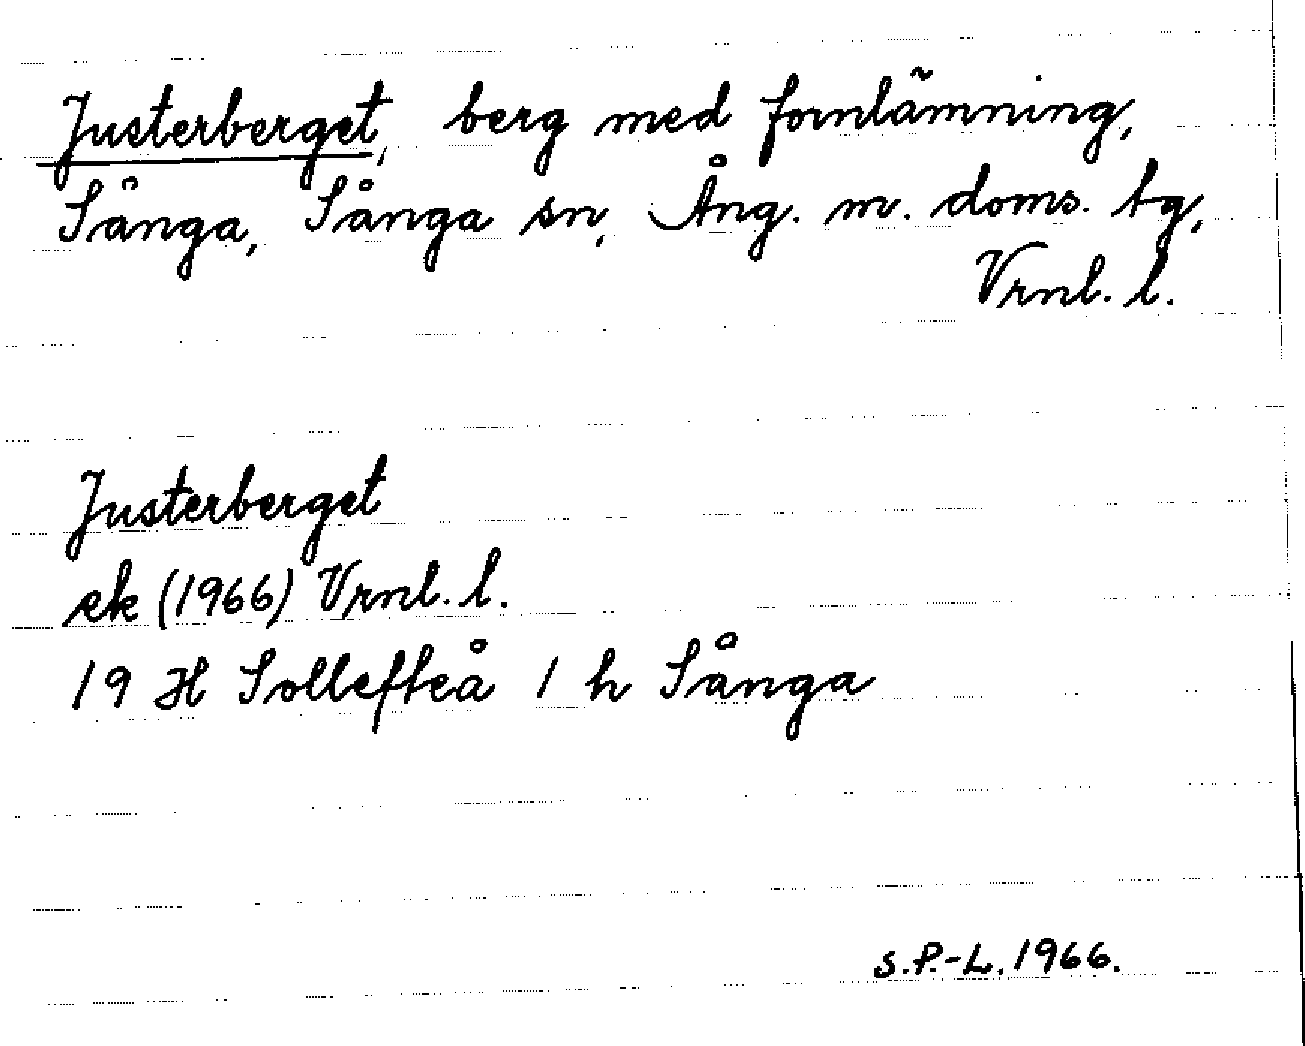 Justerberget, berg med fornlämning,
Sånga, Sånga sn, Ång. m. doms. tg,
Vrnl. l.
Justerberget
ek (1966) Vrnl. l.
19 H Sollefteå 1 h Sånga
S.P.-L. 1966.